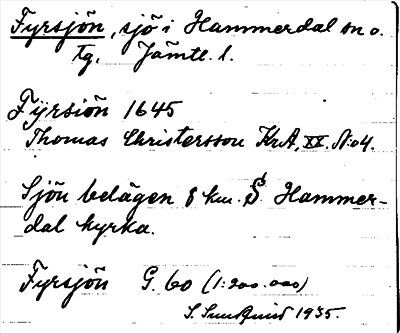 Fyrsjön, sjö i Hammerdal sn o.
tg. Jämtl. l.
Fÿrsiön 1645
Thomas Christersson KrA, XX. N:o 4.
Sjön belägen 8 km. S. Hammer-
dal kyrka.
Fyrsjön G. 60 (1:200.000)
S. 1935.